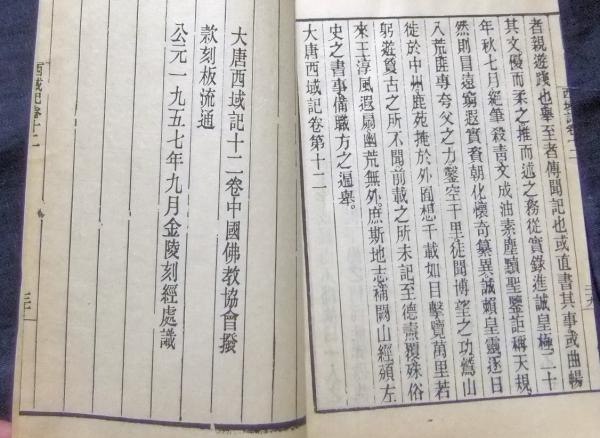 西域記卷十二
者親遊踐也舉至者傳聞記也或直書其事或曲暢
其文優而柔之推而述之務從實錄進誠皇極二十
年秋七月絕筆殺青文成油素塵黷聖鑒詎稱天規
然則冒遠窮遐實資朝化懷奇纂異誠賴皇靈逐日
八荒匪專夸父之力鑿空千里徒聞博望之功鷲山
徙於中州鹿苑掩於外囿想千載如目擊覽萬里若
躬遊敻古之所不聞前載之所未記至德燾覆殊俗
來王淳風遐扇幽荒無外庶斯地志補闕山經頒左
史之書事備職方之遍舉。
大唐西域記卷第十二
大唐西域記十二卷中國佛教協會撥
款刻板流通
公元一九五七年九月金陵刻經處識
西域記卷十二